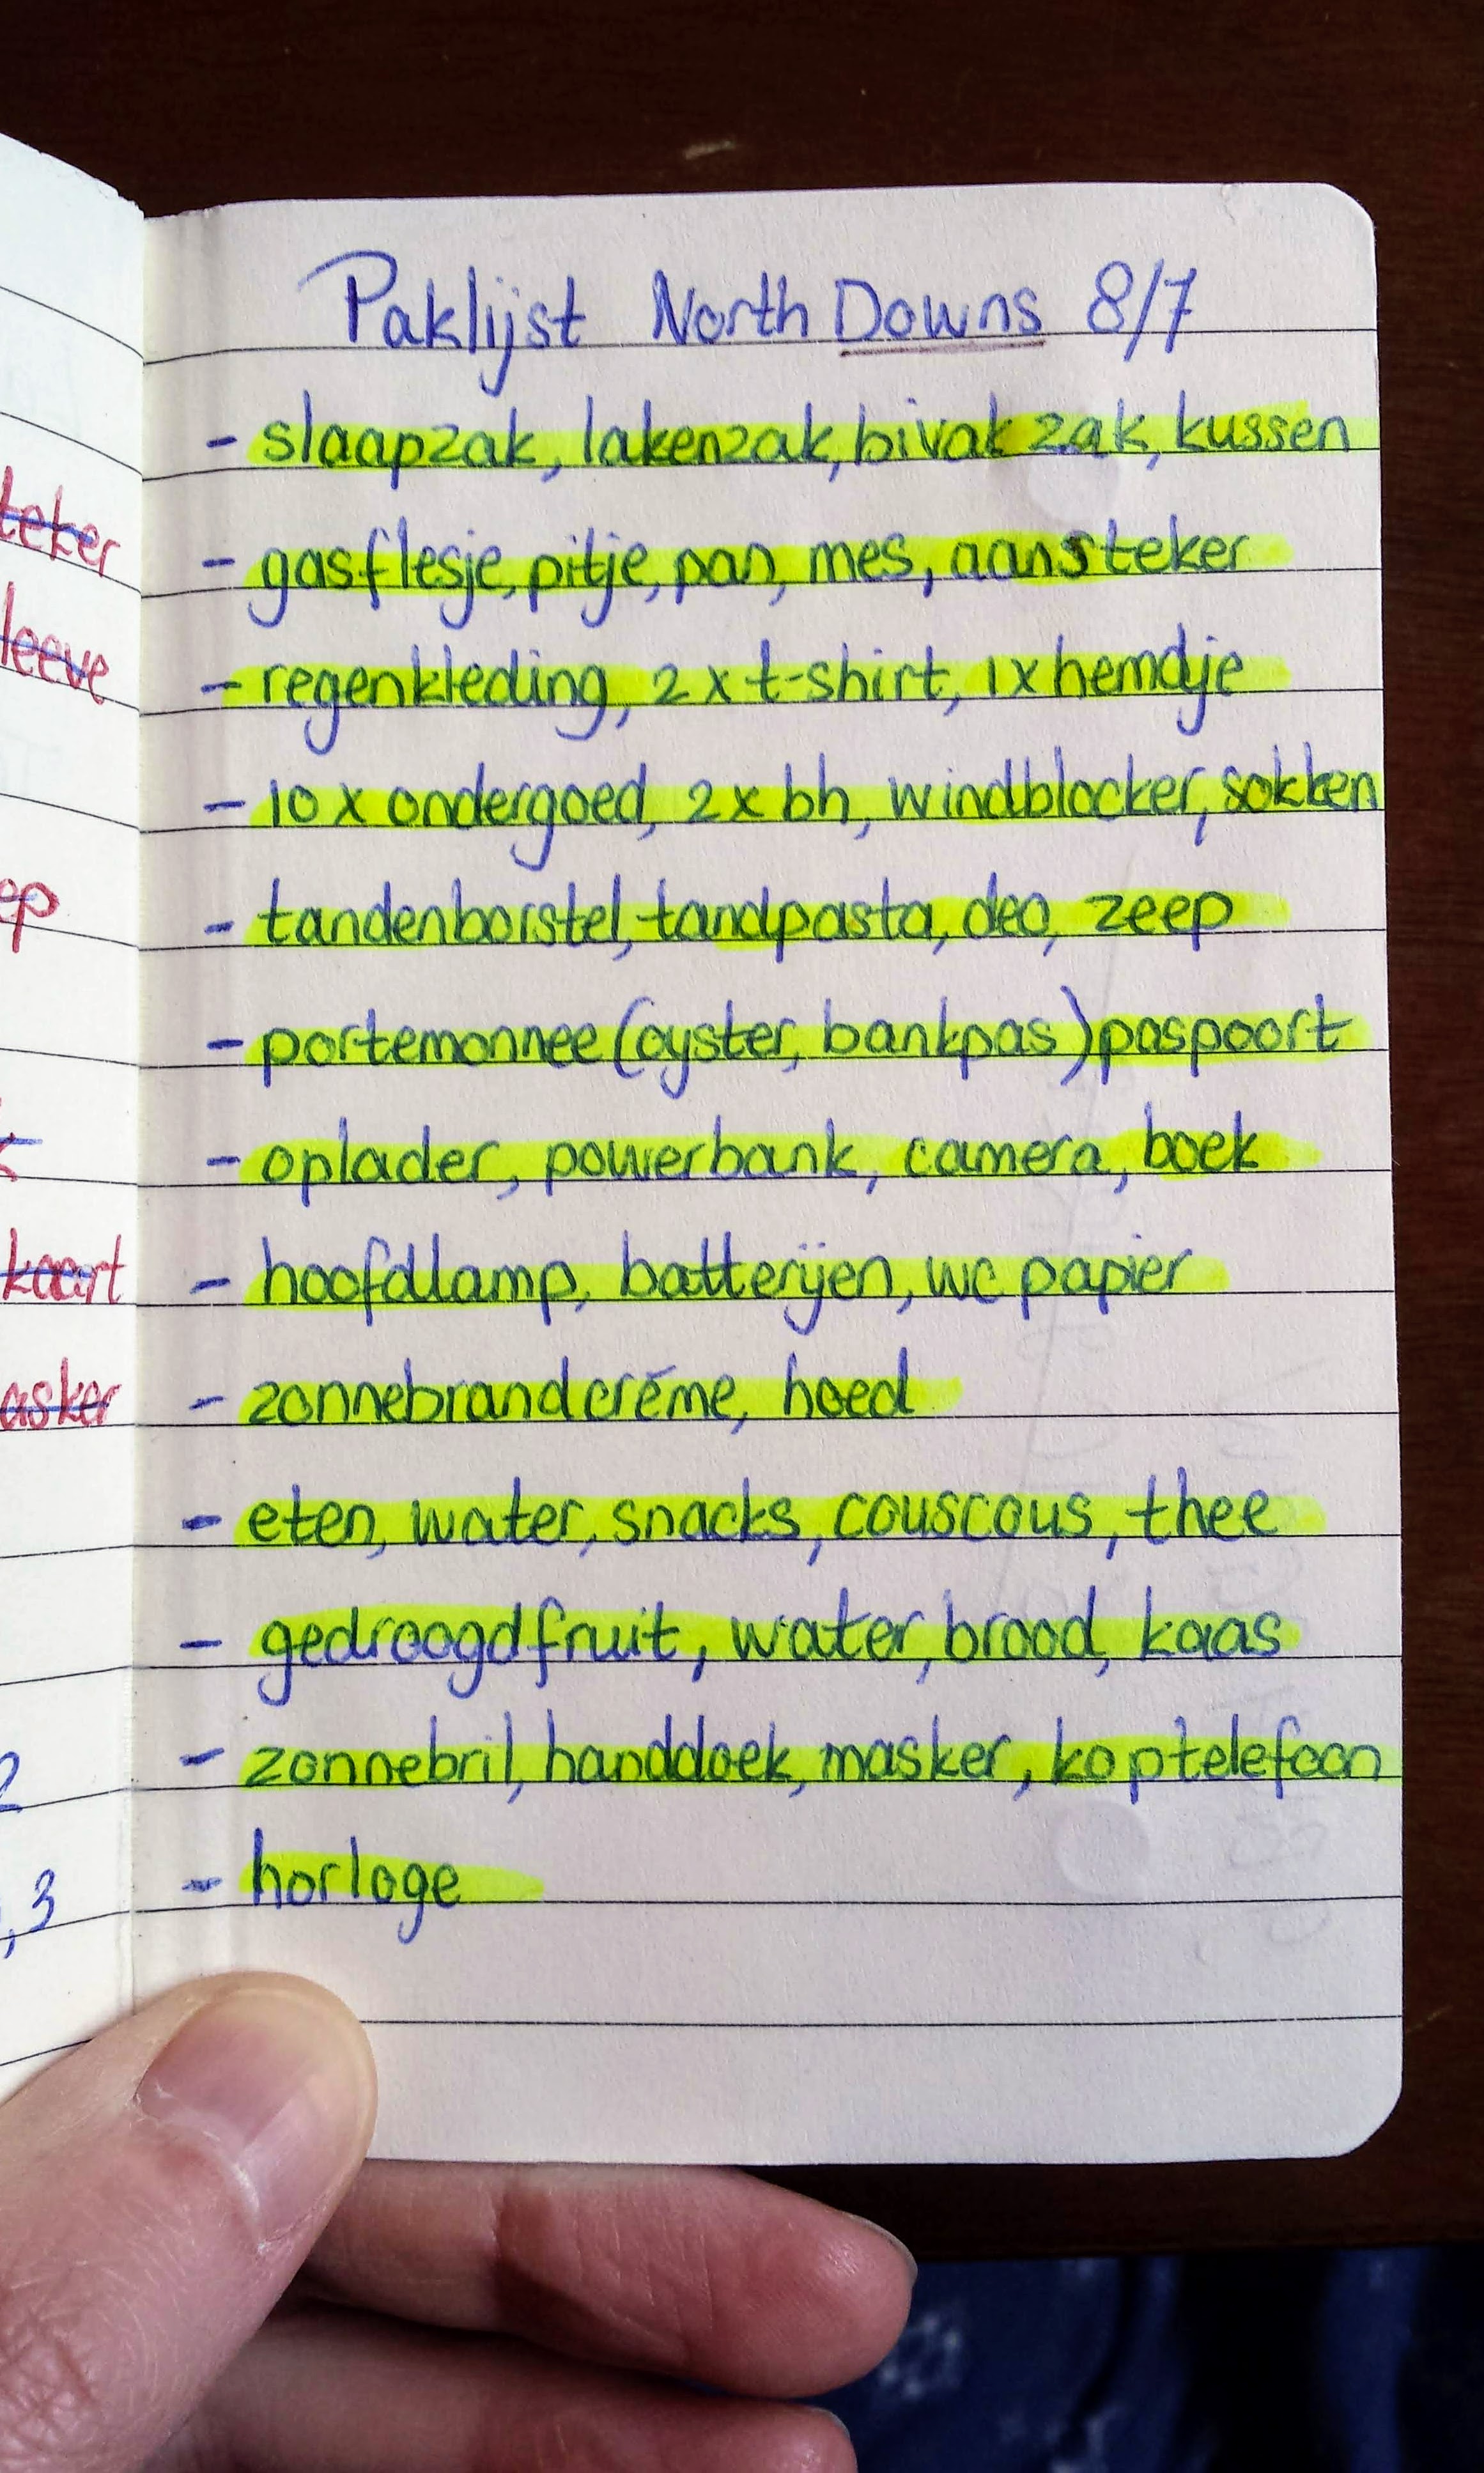 Paklijst North Downs 8/7
- slaapzak, lakenzak, bivakzak, kussen
- gasflesje, pitje, pan, mes, aansteker
- regenkleding, 2 x t-shirt, 1x hemdje
- 10 x ondergoed, 2 x bh, windblocker, sokken
- tandenborstel, tandpasta, deo, zeep
- portemonnee (oyster, bankpas) paspoort
- oplader, powerbank, camera, boek
- hoofdlamp, batterijen, wc papier
- zonnebrandcréme, hoed
- eten, water, snacks, couscous, thee
- gedroogd fruit, water, brood, kaas
- zonnebril, handdoek, masker, koptelefoon
- horloge
teker
leeve
ep
kaart
asker
2
,3